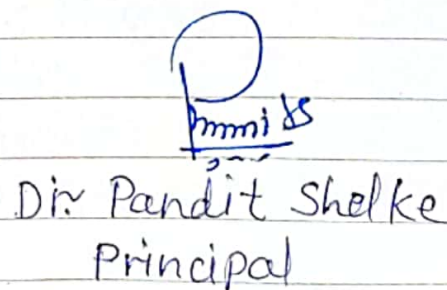 Dr. Pandit Shelke
Principal